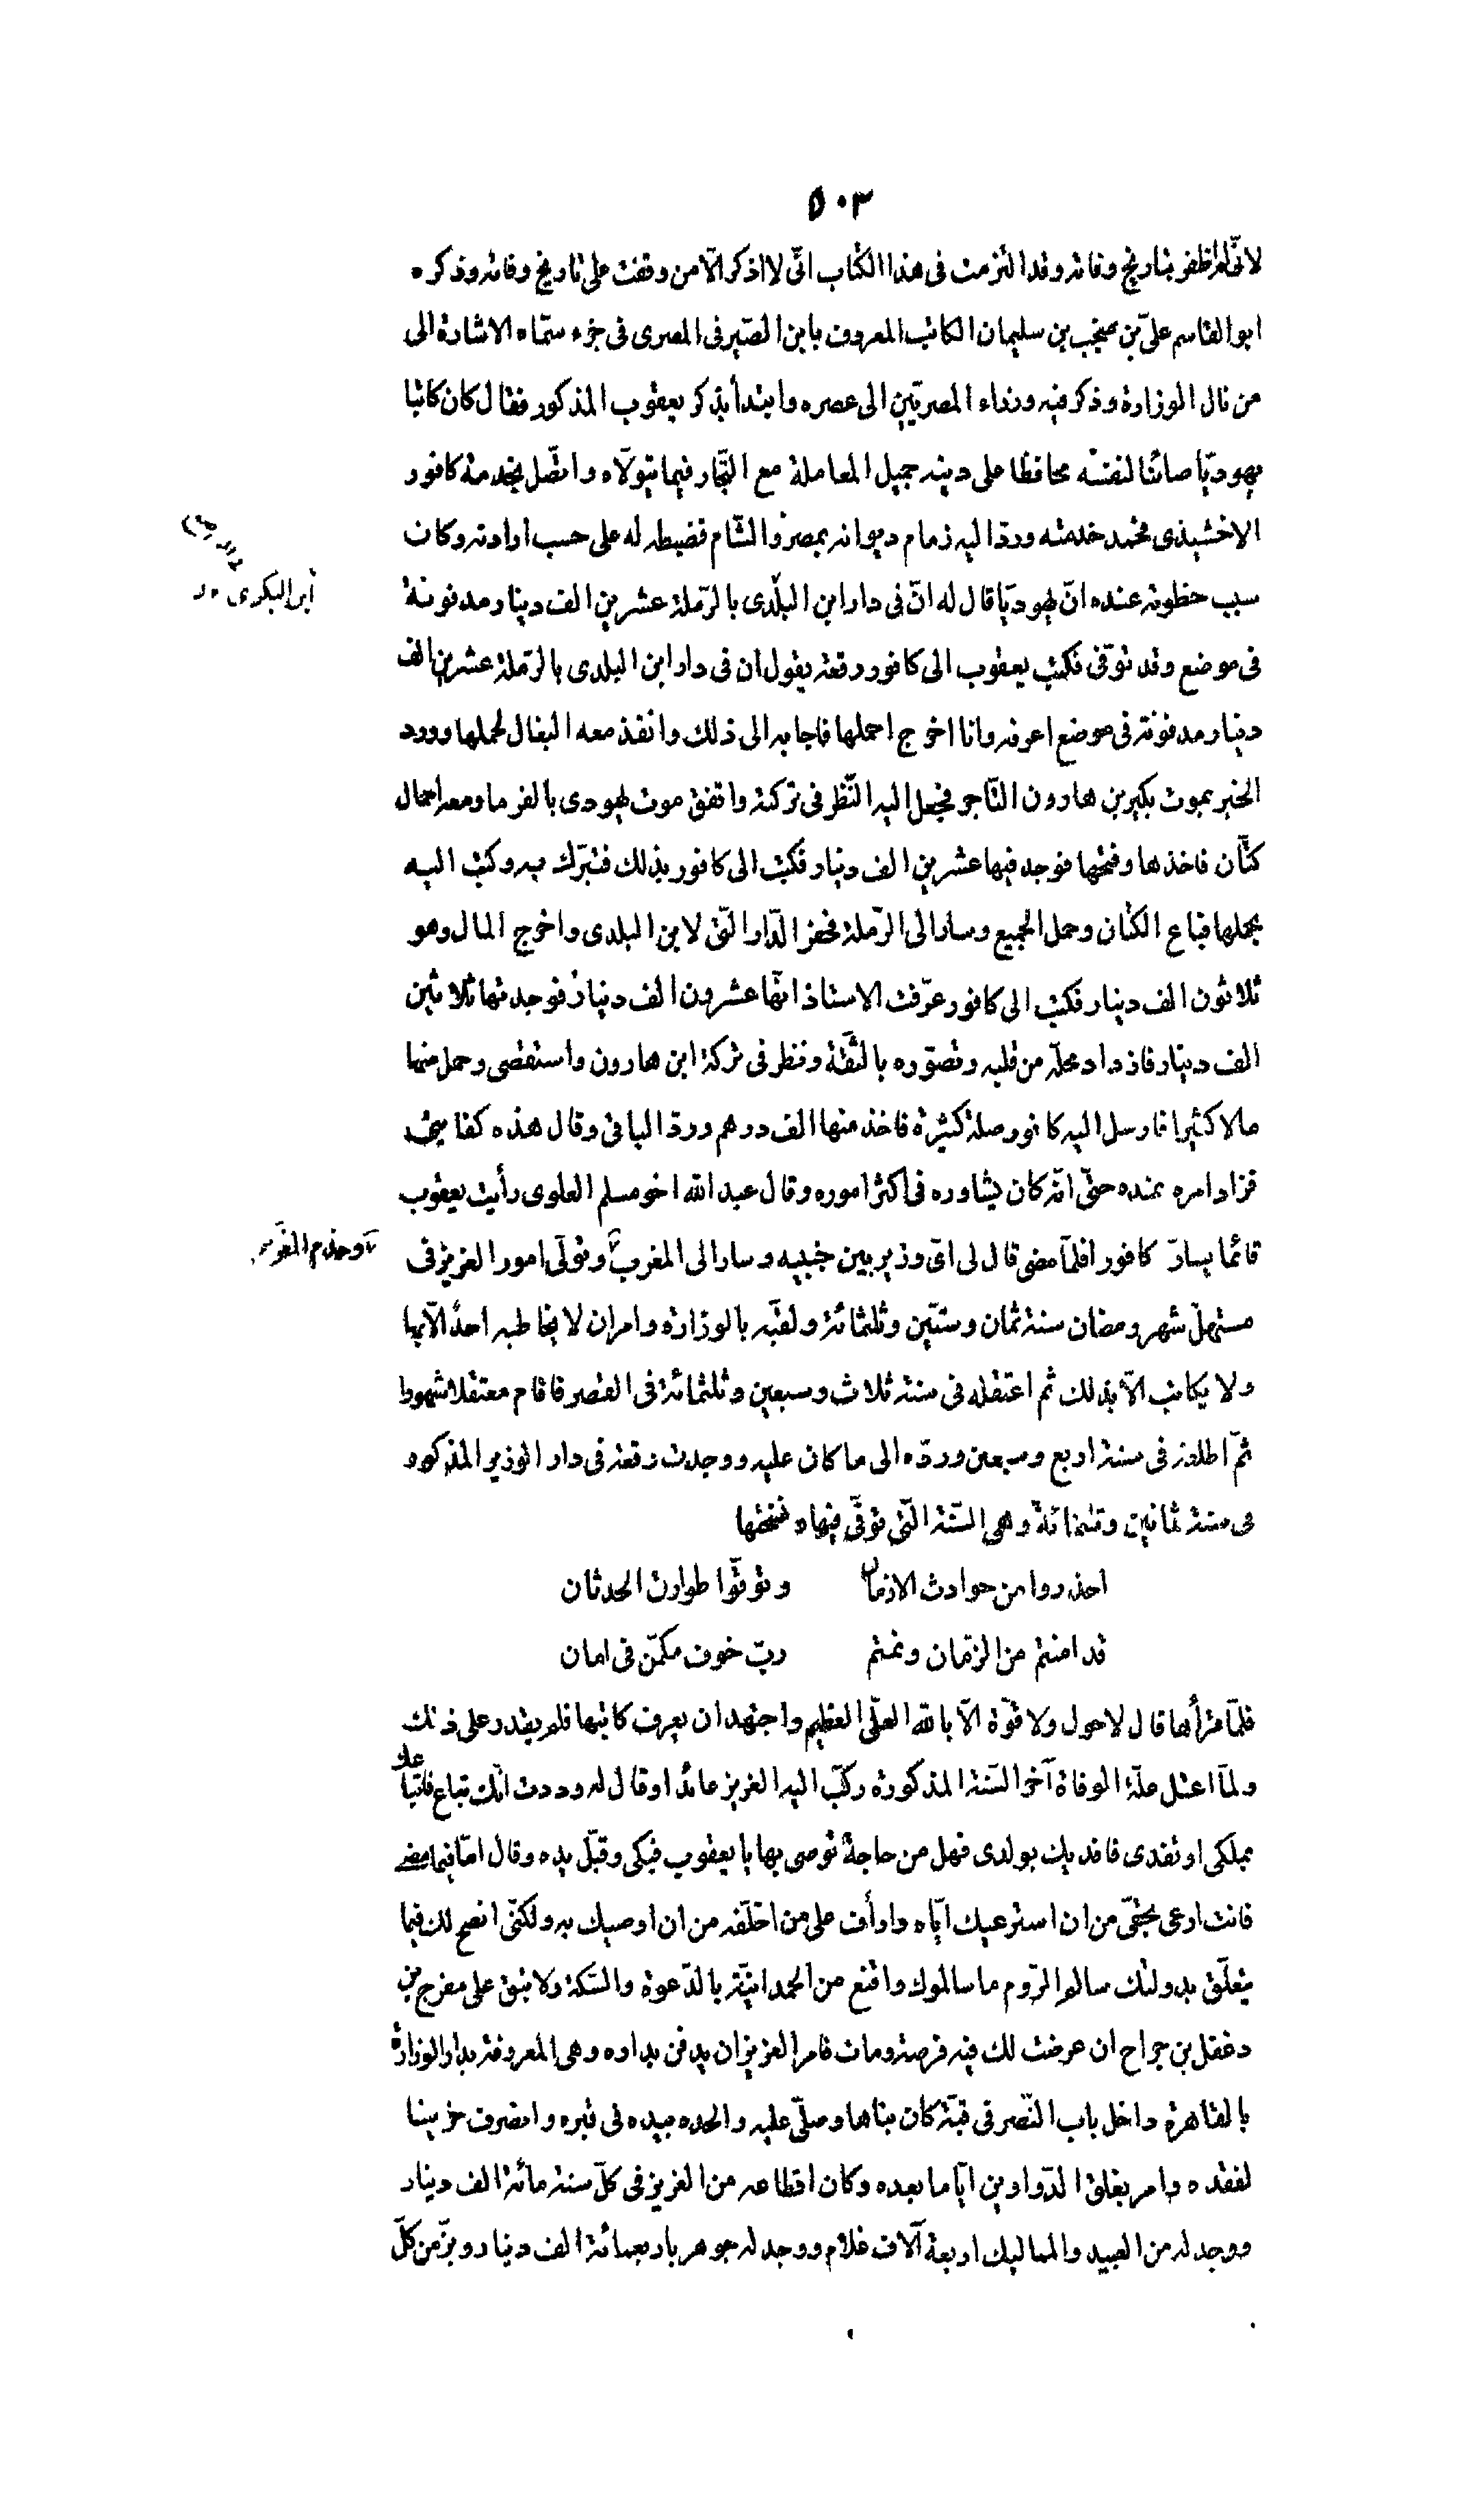 ٥٠٣
لانّى لم اظفر بتاريخ وفاته وقد التزمت فى هذا الكتاب انّى لا اذكر الّا من وقفت على تاريخ وفاته وذكره
ابو القاسم علىّ بن منجب بن سليمان الكاتب المعروف بابن الصّيرفى المصرى فى جزء سمّاه الاشارة الى
من نال الوزارة وذكر فيه وزراء المصريّين الى عصره وابتدأ بذكر يعقوب المذكور فقال كان كاتبا
يهوديّا صائنا لنفسه محافظا على دينه جميل المعاملة مع التّجار فيما يتولّاه واتّصل بخدمة كافور
الاخشيذى فحمد خدمته وردّ اليه زمام ديوانه بمصر والشّام فضبطه له على حسب ارادته وكان
سبب حظوته عنده انّ يهوديّا قال له انّ فى دار ابن البلدى بالرّملة عشرين الف دينار مدفونة
ابن البكرى
فى موضع وقد توفّى فكتب يعقوب الى كافور رقعة يقول ان فى دار ابن البلدى بالرّملة عشرين الف
دينار مدفونة فى موضع اعرفه وانا اخرج احملها فاجابه الى ذلك وانفذ معه البغال لحملها وورد
الخبر بموت بكير بن هارون التّاجر فجعل اليه النّظر فى تركته واتفق موت يهودى بالفرما ومعه احمال
كتّان فاخذها وفتحها فوجد فيها عشرين الف دينار فكتب الى كافور بذلك فتبرّك به وكتب اليه
بحملها فباع الكتان وحمل الجميع وسار الى الرّملة فحفر الدّار الّتى لابن البلدى واخرج المال وهو
ثلاثون الف دينار فكتب الى كافور عرّفت الاستاذ انّها عشرون الف دينار فوجدتها ثلاثين
الف دينار فازداد محلّه من قلبه وتصوّره بالثّقة ونظر فى تركة ابن هارون واستقصى وحمل منها
مالا كثيرا فارسل اليه كافور صلة كثيرة فاخذ منها الف درهم وردّ الباقى وقال هذه كفايتى
فزاد امره عنده حتّى انّه كان يشاوره فى اكثر اموره وقال عبد الله اخو مسلم العلوى رأيت يعقوب
قائما يسارّ كافورا فلمّا مضى قال لى اىّ وزير بين جنبيه وسار الى المغرب وتولّى امور العزيز فى
وخدم المعز
مستهلّ شهر رمضان سنة ثمان وستّين وثلثمائة ولقّبه بالوزارة وامر ان لا يخاطبه احدٌ الّا بها
ولا يكاتب الّا بذلك ثم اعتقله فى سنة ثلاث وسبعين وثلثمائة فى القصر فاقام معتقلا شهورا
ثمّ اطلقه فى سنة اربع وسبعين وردّه الى ما كان عليه ووجدت رقعة فى دار الوزير المذكور
فى سنة ثمانين وثلثمائة وهى السّنة الّتى توفّى فيها ونسختها
احذروا من حوادث الازمان وتوقّوا طوارق الحدثان
قد امنتم من الزّمان ونمتم ربّ خوف مكمّن فى امان
فلمّا قرأها قال لا حول ولا قوّة الّا بالله العلىّ العظيم واجتهد ان يعرف كاتبها فلم يقدر على ذلك
ولمّا اعتل علّة الوفاة آخر السّنة المذكورة ركب اليه العزيز عائدا وقال له وددت انّك تباع فابتاعك
بملكى او تفدى فافديك بولدى فهل من حاجة توصى بها يا يعقوب فبكى وقبّل يده وقال امّا فيما
فانت ارعى بحقّى من ان استرعيك ايّاه وارأف على من اخلّفه من ان اوصيك به ولكنّى انصح لك فيما
يتعلّق بدولتك سالم الرّوم ما سالموك واقنع من الحمدانيّة بالدّعوة والسّكة ولا تبق على مفرج بن
دغفل بن جراح ان عرضت لك فيه فرصة ومات فامر العزيز ان يدفن بداره وهى المعروفة بدار الوزارة
بالقاهرة داخل باب النّصر فى قبّة كان بناها وصلّى عليه والحده بيده فى قبره وانصرف حزينا
لفقده وامر بغلق الدّواوين ايّاما بعده وكان اقطاعه من العزيز فى كلّ سنة مائة الف دينار
ووجد له من العبيد والمماليك اربعة آلاف غلام ووجد له جوهر باربعمائة الف دينار وبزّ من كلّ